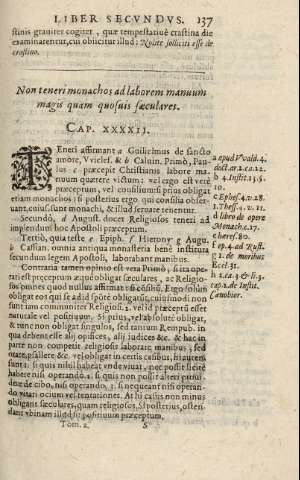 LIBER SECVNDVS. 137
stinis grauiter cogitet, quæ tempestatiuè crastina die
examinarentur, cui obiicitur illud: Nolite solliciti esse de
crastino.
Non teneri monachos ad laborem manuum
magis quàm quosuis sæculares.
CAP. XXXXIJ.
TEneri affirmant a Guilielmus de sancto
amore, Vviclef. & b Caluin. Primò, Pau-
lus c præcepit Christianis labore ma-
nuum quærere victum: vel ergo est verè
præceptum, vel consilium: si prius obligat
etiam monachos: si posterius ergo, qui consilia obser-
uant, cuiusmodi monachi, & illud seruare tenentur.
Secundò, d August. docet Religiosos teneri ad
implendum hoc Apostoli præceptum.
Tertiò, quia teste e Epiph. f Hierony. g Aug.
h Cassian. omnia antiqua monasteria benè instituta
secundum legem Apostoli, laborabant manibus.
Contraria tamen opinio est vera. Primò, si ea ope-
rari est præceptum æquè obligat sæculares, ac Religio-
sos: omnes quod nullus affirmat: si consilium. Ergo solùm
obligat eos qui se ad id spontè obligarūt, cuiusmodi non
sunt tam communiter Religiosi. 2. vel id præceptū esset
naturale vel positiuum. Si prius, vel absolutè obligat,
& tunc non obligat singulos, sed tantum Rempub. in
qua debent esse alij opifices, alij iudices &c. & hac in
parte non competit religiosis laborare manibus, sed
stare, psallere &c. vel obligat in certis casibus, hi autem
sunt: 1. si quis nihil habeat vnde viuat, nec possit licitè
habere nisi operando. 2. si quis non possit alteri proui-
dere de cibo, nisi operando, 3. si nequeat nisi operan-
do vitari ocium vel tentationes. At hi casus non minus
obligant sæculares, quàm religiosos. Si posterius, osten-
dant vbinam illud sit positiuum præceptum.
Tom. 2. S
a apud Vvald. 4.
b 4. Instit. 13. 5.
10.
c Ephes. 4. v. 28.
d libro de opere
Monach. c. 17.
e hæres. 80.
f ep. 4. ad Rust.
g 1. de moribus
Eccl. 31.